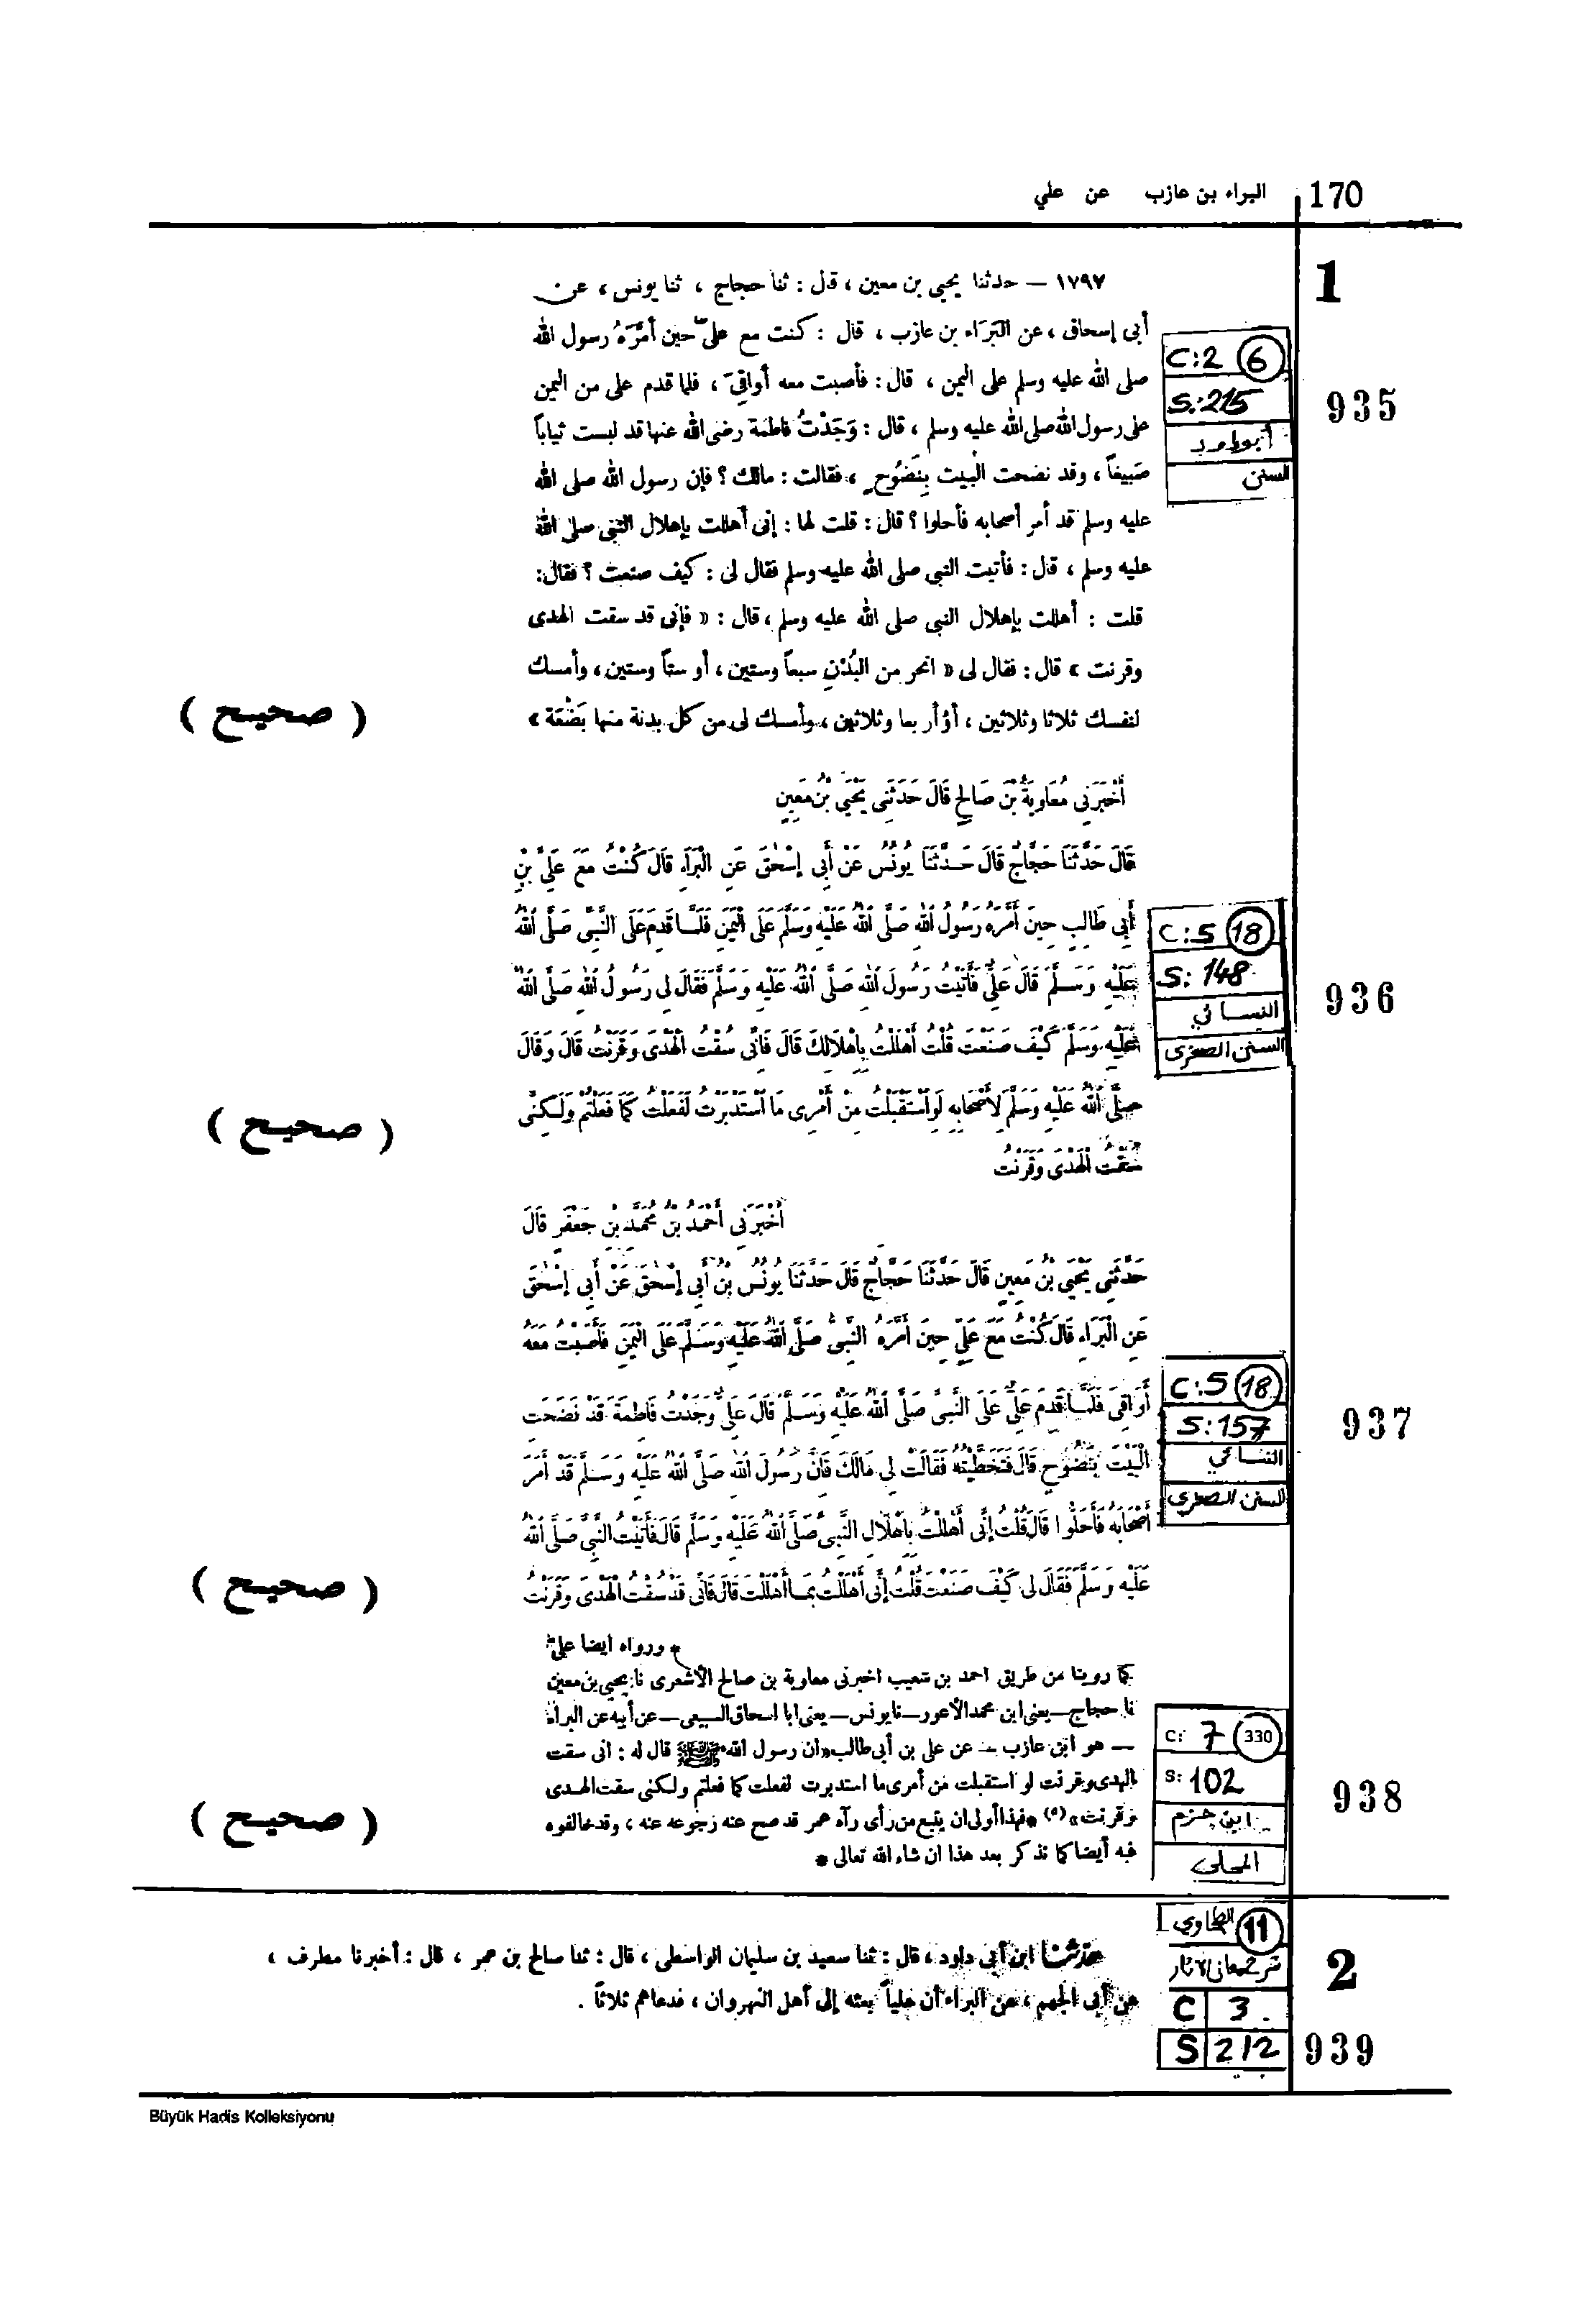 170 البراء بن عازب عن علي
1
١٧٩٧ — حدثنا يحيى بن معين ، قال : ثنا حجاج ، ثنا يونس ، عن
أبى إسحاق ، عن البَرَاء بن عازب ، قال : كنت مع علىّ حين أمَّرَهُ رسول الله
صلى الله عليه وسلم على اليمن ، قال : فأصبت معه أواقِىَ ، فلما قدم على من اليمن
على رسول الله صلى الله عليه وسلم ، قال : وَجَدْتُ فاطمة رضى الله عنها قد لبست ثياباً
صَبيغاً ، وقد نضحت البيت بِنَضُوح ، فقالت : مالك ؟ فإن رسول الله صلى الله
عليه وسلم قد أمر أصحابه فأحلوا ؟ قال : قلت لها : إنى أهللت بإهلال النبى صلى الله
عليه وسلم ، قال : فأتيت النبى صلى الله عليه وسلم فقال لى : كيف صنعت ؟ فقال :
قلت : أهللت بإهلال النبى صلى الله عليه وسلم ، قال : « فإنى قد سقت الهدى
وقرنت » قال : فقال لى « انحر من البُدْنِ سبعاً وستين ، أو ستاً وستين ، وأمسك
لنفسك ثلاثا وثلاثين ، أو أربعا وثلاثين ، وأمسك لى من كل بدنة منها بَضْعَة »
( صحيح )
C:2 6
S:215
أبو داود
السنن
935
أَخْبَرَنِي مُعَاوِيَةُ بْنُ صَالِحٍ قَالَ حَدَّثَنِي يَحْيَى بْنُ مَعِينٍ
قَالَ حَدَّثَنَا حَجَّاجٌ قَالَ حَدَّثَنَا يُونُسُ عَنْ أَبِي إِسْحٰقَ عَنِ الْبَرَاءِ قَالَ كُنْتُ مَعَ عَلِيِّ بْنِ
أَبِي طَالِبٍ حِينَ أَمَّرَهُ رَسُولُ اللهِ صَلَّى اللهُ عَلَيْهِ وَسَلَّمَ عَلَى الْيَمَنِ فَلَمَّا قَدِمَ عَلَى النَّبِيِّ صَلَّى اللهُ
عَلَيْهِ وَسَلَّمَ قَالَ عَلِيٌّ فَأَتَيْتُ رَسُولَ اللهِ صَلَّى اللهُ عَلَيْهِ وَسَلَّمَ فَقَالَ لِي رَسُولُ اللهِ صَلَّى اللهُ
عَلَيْهِ وَسَلَّمَ كَيْفَ صَنَعْتَ قُلْتُ أَهْلَلْتُ بِإِهْلَالِكَ قَالَ فَإِنِّي سُقْتُ الْهَدْىَ وَقَرَنْتُ قَالَ وَقَالَ
صَلَّى اللهُ عَلَيْهِ وَسَلَّمَ لِأَصْحَابِهِ لَوِ اسْتَقْبَلْتُ مِنْ أَمْرِى مَا اسْتَدْبَرْتُ لَفَعَلْتُ كَمَا فَعَلْتُمْ وَلٰكِنِّى
سُقْتُ الْهَدْىَ وَقَرَنْتُ
( صحيح )
C:5 18
S:148
النسائي
السنن الصغرى
936
أَخْبَرَنِي أَحْمَدُ بْنُ مُحَمَّدِ بْنِ جَعْفَرٍ قَالَ
حَدَّثَنِي يَحْيَى بْنُ مَعِينٍ قَالَ حَدَّثَنَا حَجَّاجٌ قَالَ حَدَّثَنَا يُونُسُ بْنُ أَبِي إِسْحٰقَ عَنْ أَبِي إِسْحٰقَ
عَنِ الْبَرَاءِ قَالَ كُنْتُ مَعَ عَلِيٍّ حِينَ أَمَّرَهُ النَّبِيُّ صَلَّى اللهُ عَلَيْهِ وَسَلَّمَ عَلَى الْيَمَنِ فَأَصَبْتُ مَعَهُ
أَوَاقِيَ فَلَمَّا قَدِمَ عَلِيٌّ عَلَى النَّبِيِّ صَلَّى اللهُ عَلَيْهِ وَسَلَّمَ قَالَ عَلِيٌّ وَجَدْتُ فَاطِمَةَ قَدْ نَضَحَتِ
الْبَيْتَ بِنَضُوحٍ قَالَ فَتَخَطَّيْتُهُ فَقَالَتْ لِي مَالَكَ فَإِنَّ رَسُولَ اللهِ صَلَّى اللهُ عَلَيْهِ وَسَلَّمَ قَدْ أَمَرَ
أَصْحَابَهُ فَأَحَلُّوا قَالَ قُلْتُ إِنِّي أَهْلَلْتُ بِإِهْلَالِ النَّبِيِّ صَلَّى اللهُ عَلَيْهِ وَسَلَّمَ قَالَ فَأَتَيْتُ النَّبِيَّ صَلَّى اللهُ
عَلَيْهِ وَسَلَّمَ فَقَالَ لِي كَيْفَ صَنَعْتَ قُلْتُ إِنِّي أَهْلَلْتُ بِمَا أَهْلَلْتَ قَالَ فَإِنِّي قَدْ سُقْتُ الْهَدْىَ وَقَرَنْتُ
( صحيح )
C:5 18
S:157
النسائي
السنن الصغرى
937
* ورواه ايضا على
كما روينا من طريق احمد بن شعيب اخبرنى معاوية بن صالح الأشعرى نا يحيى بن معين
نا حجاج — يعنى ابن محمد الأعور — نا يونس — يعنى ابا اسحاق السبيعى — عن أبيه عن البراء
— هو ابن عازب — عن على بن أبى طالب « ان رسول الله ﷺ قال له : انى سقت
الهدى وقرنت لو استقبلت من أمرى ما استدبرت لفعلت كما فعلتم ولكنى سقت الهدى
وقرنت » (٥) * فهذا أولى ان يتبع من رأى رآه عمر قد صح عنه رجوعه عنه ، وقد خالفوه
فيه أيضا كما نذكر بعد هذا ان شاء الله تعالى *
( صحيح )
C: 7 330
S: 102
ابن حزم
المحلى
938
2
حدثنا ابن أبى داود ، قال : ثنا سعيد بن سليمان الواسطى ، قال : ثنا صالح بن عمر ، قال : أخبرنا مطرف ،
عن أبى الجهم ، عن البراء أن علياً بعثه إلى أهل النهروان ، فدعاهم ثلاثاً .
11 الطحاوي
شرح معاني الآثار
C 3
S 212
939
Büyük Hadis Kolleksiyonu